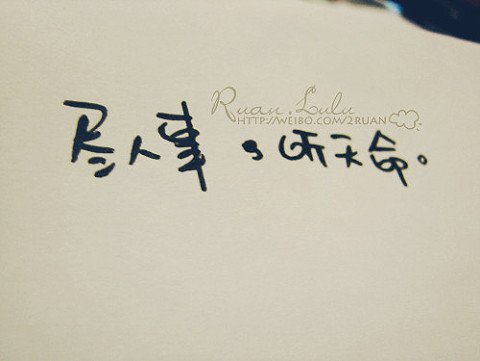 Ruan.Lulu
HTTP://WEIBO.COM/2RUAN
尽人事，听天命。